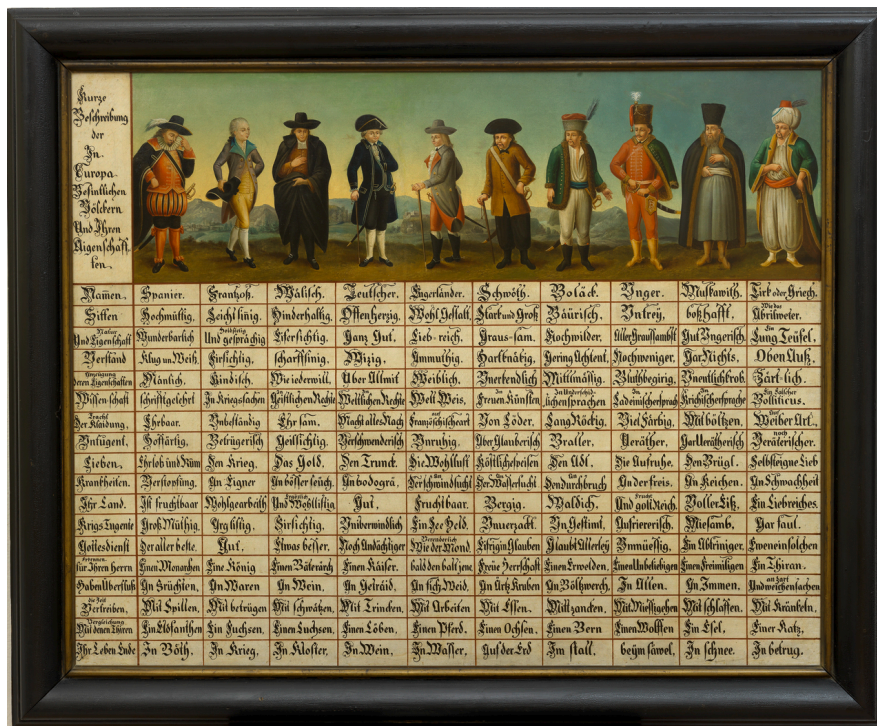 Kurze
Beschreibung
der
In
Europa
Befintlichen
Völckern
Und Ihren
Aigenschaff-
ten.
Namen. Spanier. Frantzoß. Wälisch. Teutscher. Engerländer. Schwöth. Boläck. Unger. Muskawith. Tirk oder Griech.
Sitten Hochmüttig, Leichtsinig, Hinderhaltig, Offenherzig, Wohl Gestalt, Starck und Groß Bäurisch, Untrey, boßhafft, Wie das Abrilweter.
Natur Und Eigenschaft Wunderbarlich Und gesprächig Eifersichtig, Ganz Gut, Lieb-reich, Graus-sam, Hochwilder, Aller Grausambst, Gut Ungerisch, Ein Lung Teüfel,
Verstand Klug und Weiß, Firsichtig, scharffsinig, Wizig, Ammuthig, Hartknäbig, Gering Achtent, Nochweniger, Gar Nichts, Oben Auß,
deren Eigenschaften Mänlich, Kindisch, Wie iederwill, Uber Allmit Weiblich, Unerkendlich Mittlmässig, Bluthbegirig, Unentlich krob, Zärt-lich.
Wissenschaft schrifftgelehrt In Kriegssachen Geistlichen Rechte Weltlichen Rechte Welt Weis, In Freuen Künsten, sprachen In Ladeinischer sprach In Krichischer sprache Ein Falscher Bolliticus.
Tracht Der Klaidung, Ehrbaar, Unbeständig Ehrsam, Macht alles Nach auf Französchischeart Von Löder, Lang Röckig, Viel Färbig, Mit böltzen, Auf Weiber Art,
Untugent, Hoffärtig, Betrügerisch Geilsichtig, Verschwenderisch Unruhig, Uber Glauberisch Braller, Veräther, Gar Verätherisch noch Verätterischer.
Lieben, Ehrlob und Rüm Den Krieg, Das Gold, Den Trunck, Die Wohllust Köstliche speisen Den Adl, Die Aufruhe, Den Brügl, Selbsteigne Lieb
Kranckheiten, Verstopfung, An Eigner An bösser seüch, An bodogrä, An Der schwindsucht Der Wassersucht Den durchbruch An der freis, An Keichen, An Schwachheit
Ihr Land, Ist fruchtbaar Wohlgearbeith Und Wohllistig Gut, Fruchtbaar, Bergig, Waldich, Frucht Und gold Reich, Voller Eiß, Ein Liebreiches,
Krigs Tugente Groß Müthig, Arglistig, Firsichtig, Uniberwindlich Ein See Held, Unverzackt, Un Gestimt, Aufriererisch, Miesamb, Gar faul,
Gottesdienst Der aller beste, Gut, Etwas besser, Noch Andächtiger Wie der Mond, Eifrig in Glauben Glaubt Allerley Unmüessig, Ein Abtriniger, Eweneinsolchen
Erkennen für Ihren Herrn Einen Monarchen Eine König Einen Bäterärch Einen Kaiser, bald den bald jene, Freüe Herrschaft Einen Erwelden, Einen Unbeliebigen Einen Freiwiligen Ein Thiran,
Haben Überfluß An Früchten, An Waren An Wein, An Getraid, An fich Weid, An Ärtz Kruben An Böltzwerch, In Allen, An Immen, an Zart Und weichen sachen
die Zeit Vertreiben, Mit Spillen, Mit betrügen Mit schwätzen, Mit Trincken, Mit Arbeiten Mit Essen, Mit zancken, Mit Miessigehen Mit schlaffen, Mit Kränkeln,
Vergleichung Mit denen Thiren Ein Elofanthen Ein Fuchsen, Einen Luchsen, Einen Löben, Einen Pferd, Einen Ochsen, Einen Bern Einen Wolffen Ein Esel, Einer Katz,
Ihr Leben Ende In Böth, In Krieg, In Kloster, In Wein, In Wasser, Auf der Erd In stall, beym säwel, In schnee, In betrug.